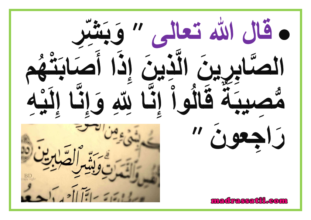 ● قال الله تعالى " وَبَشِّرِ
الصَّابِرِينَ الَّذِينَ إِذَا أَصَابَتْهُم
مُّصِيبَةٌ قَالُواْ إِنَّا لِلّهِ وَإِنَّا إِلَيْهِ
رَاجِعونَ "
وَبَشِّرِ الصَّابِرِينَ
madrassatii.com